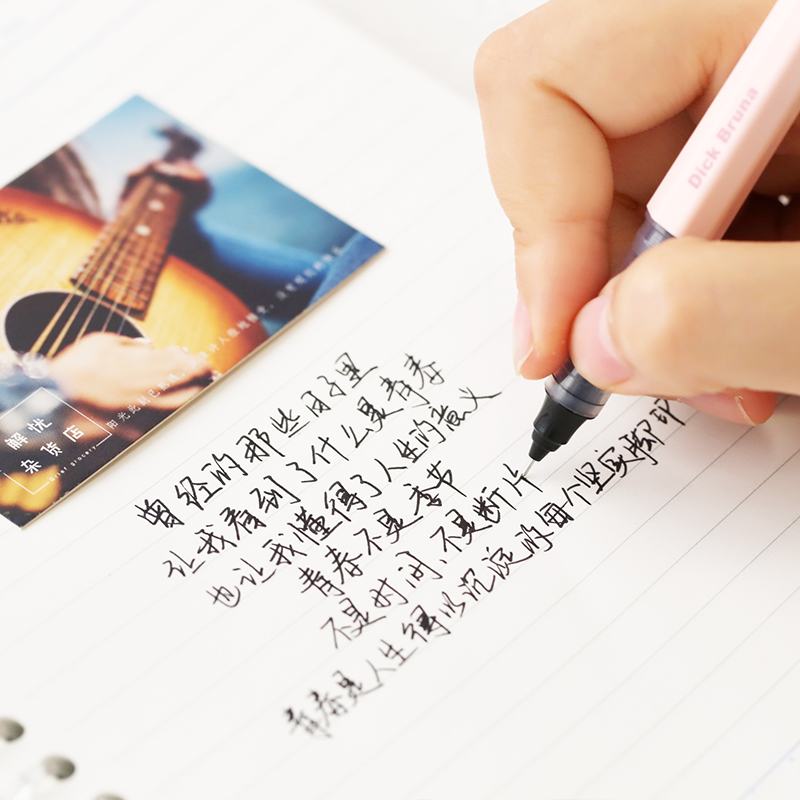 Dick Bruna
解忧
杂货店
曾经的那些日子里
让我看到了什么是青春
也让我懂得了人生的意义
青春不是季节
不是时间、不是断片
青春是人生得以沉淀的每个坚实脚印